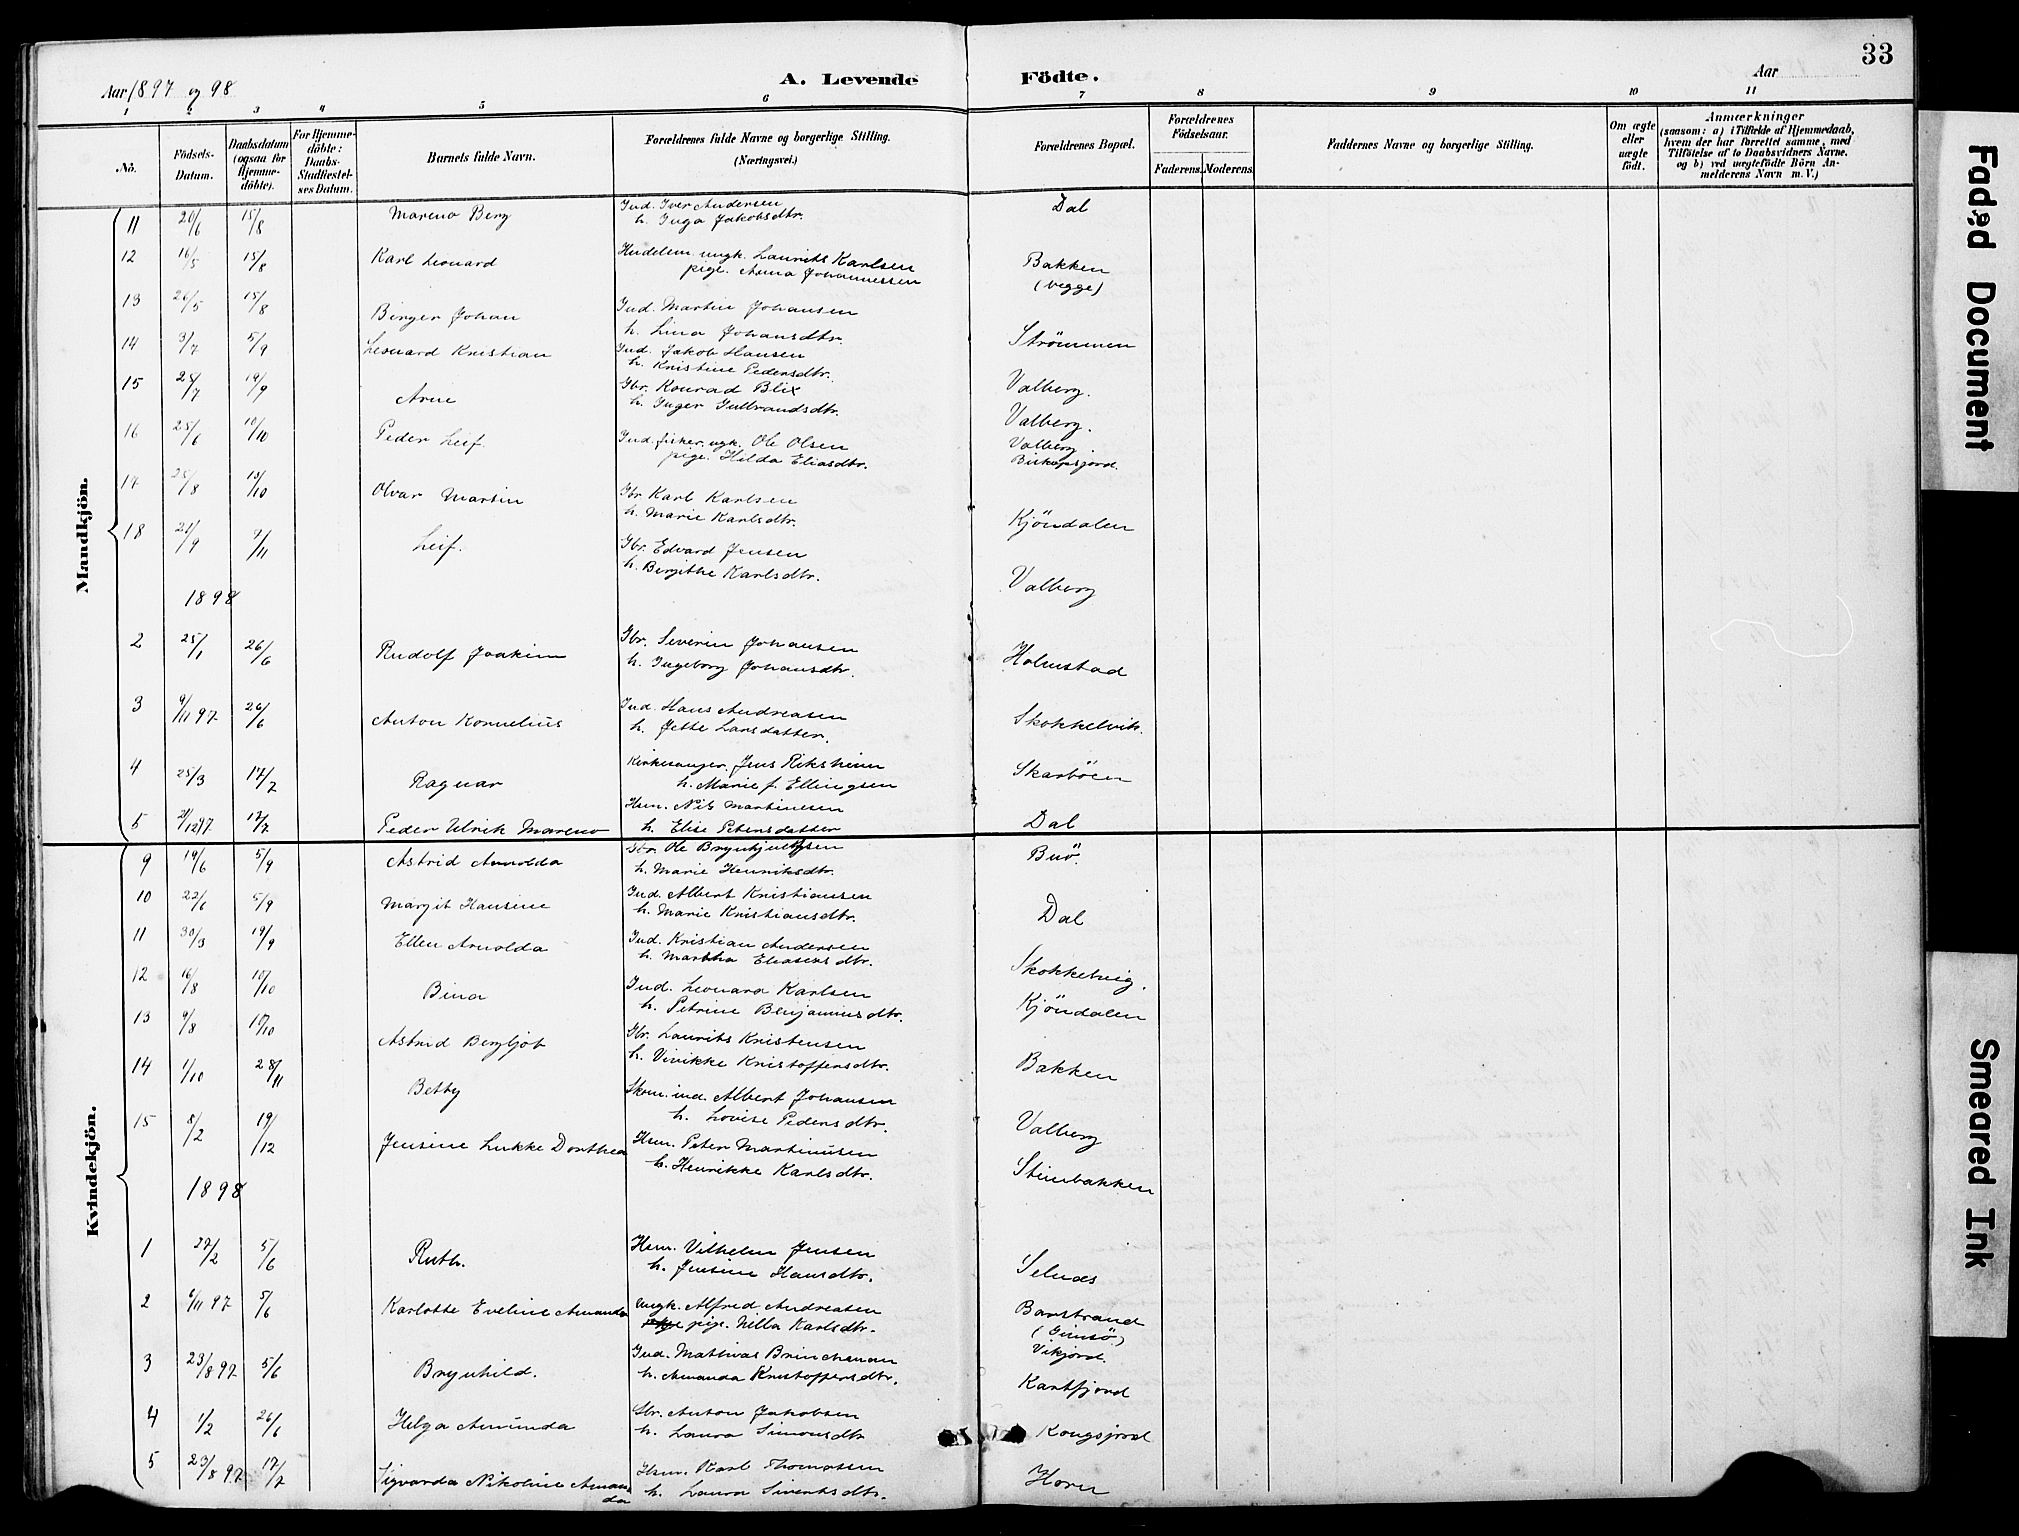 33
Aar 1897 og 98
A. Levende Födte.
Aar
1 2 3 4 5 6 7 8 9 10 11
No.
Födsels-Datum.
Daabsdatum (ogsaa for Hjemme-döbte).
For Hjemme-döbte: Daabs-Stadfæstel-ses Datum.
Barnets fulde Navn.
Forældrenes fulde Navne og borgerlige Stilling. (Næringsvei.)
Forældrenes Bopæl.
Forældrenes Födselsaar.
Faderens. Moderens.
Faddernes Navne og borgerlige Stilling.
Om ægte eller uægte födt.
Anmærkninger (saasom: a) i Tilfælde af Hjemmedaab, hvem der har forrettet samme, med Tilföielse af to Daabsvidners Navne, og b) ved uægtefödte Börn An-melderens Navn m. V.)
Mandkjön.
11 20/6 15/8 Mareno Berg Ind. Iver Andersen Dal
h. Inga Jakobsdtr.
12 16/5 15/8 Karl Leonard ungk. Laurits Karlsen Bakken
pige. Anna Johannessen (begge)
13 26/5 15/8 Birger Johan Ind. Martin Johansen Strömmen
h. Lina Johansdtr.
14 3/7 5/9 Leonard Kristian Ind. Jakob Hansen Valberg.
h. Kristine Pedersdtr.
15 25/7 19/9 Arne Gbr. Konrad Blix Valberg.
h. Inger Gulbrandsdtr.
16 25/6 10/10 Peder Leif. Ind. fisker. ugk. Ole Olsen Valberg.
pige. Hilda Eliasdtr.
17 25/8 13/10 Olvar Martin Gbr. Karl Karlsen Kjöndalen
h. Marie Karlsdtr.
18 21/9 7/11 Leif. Gbr. Edvard Jensen Valberg
h. Bergithe Karlsdtr.
1898
2 25/1 26/6 Rudolf Joakim Gbr. Severin Johansen Holmstad
h. Ingeborg Johansdtr.
3 9/11 97 26/6 Anton Kornelius Ind. Hans Andreasen Skokkelvik.
h. Jette Larsdatter.
4 25/3 17/7 Ragnar Kirkesanger. Jens Rekshein Skarböen
h. Marie f. Ellingsen
5 17/7 Peder Ulrik Mareno Hsm. Nils Martinesen Dal
h. Elise Petersdatter
Kvindekjön.
9 19/6 5/9 Astrid Arnolda Gbr. Ole Brynhjulfsen Buö.
h. Marie Henriksdtr.
10 22/6 5/9 Margit Hansine Ind. Albert Kristiansen Dal
h. Marie Kristiansdtr.
11 30/3 19/9 Ellen Arnolda Ind. Kristian Andersen Skokkelvig.
h. Martha Eliasens dtr.
12 16/8 10/10 Bina Ind. Leonard Karlsen Kjöndalen
h. Petrine Benjaminsdtr.
13 9/8 10/10 Astrid Bergljot Gbr. Laurits Kristensen Bakken
h. Vivikke Kristoffersdtr.
14 1/10 28/11 Betty Skom. ind. Albert Johansen Valberg
h. Lovise Pedersdtr.
15 8/2 19/12 Jensine Lukke Dorthea Hsm. Peter Martinusen Steinbakken
h. Henrikke Karlsdtr.
1898
1 27/2 5/6 Ruth. Hsm. Vilhelm Jensen Selnæs
h. Jensine Hansdtr.
2 6/11 97 5/6 Karlotte Eveline Amanda Ungk. Alfred Andreasen Barstrand
pige. Nella Karlsdtr. (Gimsö)
Vikjord.
3 23/8 97 5/6 Brynhild. Ind. Mathias Brinchman Kartfjord
h. Amanda Kristoffersdtr.
4 1/2 26/6 Helga Amunda Gbr. Anton Jakobsen Kongsjord
h. Laura Simonsdtr
5 23/8 97 17/7 Sigvarda Nikoline Amanda Hsm. Karl Thomassen Horn
h. Laura Sivertsdtr.
Faded Document
Smeared Ink